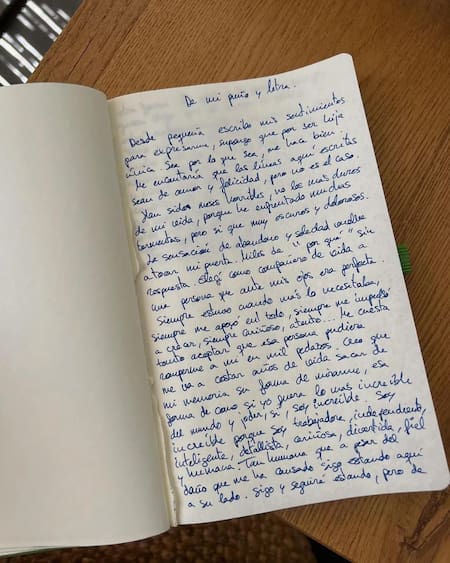 De mi puño y letra.
Desde pequeña escribo mis sentimientos
para expresarme, supongo que por ser hija
única. Sea por lo que sea, me hace bien.
Me encantaría que las líneas aquí escritas
sean de amor y felicidad, pero no es el caso.
Han sido meses horribles, no los mas duros
de mi vida, porque he enfrentado muchas
tormentas, pero si que muy oscuros y dolorosos.
La sensación de abandono y soledad vuelve
a tocar mi puerta. Miles de "por qué" sin
respuesta. Elegí como compañero de vida a
una persona que ante mis ojos era perfecta.
Siempre estuvo cuando más lo necesitaba,
siempre me apoyó en todo, siempre me impulsó
a crear, siempre cariñoso, atento... Me cuesta
tanto aceptar que esa persona pudiera
romperme a mi en mil pedazos. Creo que
me va a costar años de vida sacar de
mi memoria su forma de mirarme, esa
forma de como si yo fuera lo mas increíble
del mundo y joder, si, soy increíble. Soy
increíble porque soy trabajadora, independiente,
inteligente, detallista, cariñosa, divertida, fiel
y humana. Tan humana que a pesar del
daño que me ha causado sigo estando aquí
a su lado. Sigo y seguiré estando, pero de